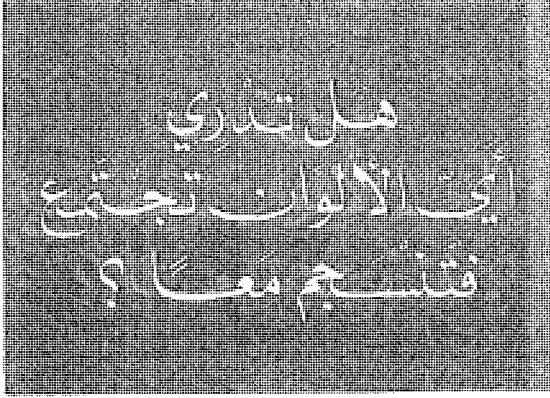 هَل تَدْرِي
أَيّ الألوَان تَجتَمع
فتَنْسَجم مَعاً ؟